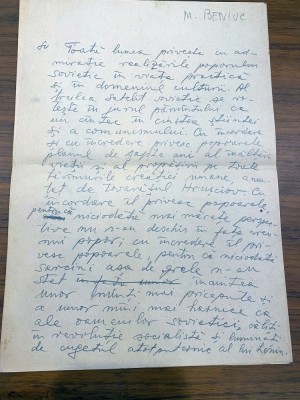 M. BENIUC
Toată lumea privește cu ad-
mirație realizările poporului
sovietic în viața practică
și în domeniul culturii. Al
treilea satelit sovietic se ro-
tește în jurul pământului ca
un cîntec în cinstea științei
și a comunismului. Cu încordare
și cu încredere privesc popoarele
planul de șapte ani al
și al pe toate
tărîmurile creației umane, anun-
țat de tovarășul Hrusciov. Cu
încordare îl privesc popoarele
pentru că niciodată mai mărețe perspec-
tive nu s-au deschis în fața vreu-
nui popor, cu încredere îl pri-
vesc popoarele, pentru că niciodată
sarcini așa de grele n-au
stat înaintea
unor minți mai pricepute și
a unor mîini mai harnice ca
ale oamenilor sovietici, căliți
în revoluție socialistă și luminați
de cugetul atotputernic al lui Lenin.